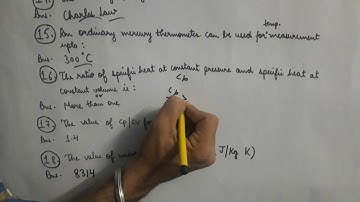 Ans. Charles Law
temp.
15. An ordinary mercury thermometer can be used for measurement
upto:
Ans. 300°C
16. The ratio of specific heat at constant pressure and specific heat at
Cp
constant volume is:
Cp
Ans. More than one
17. The value of Cp/Cv for
Ans. 1.4
18. The value of J/Kg K)
Ans. 8314